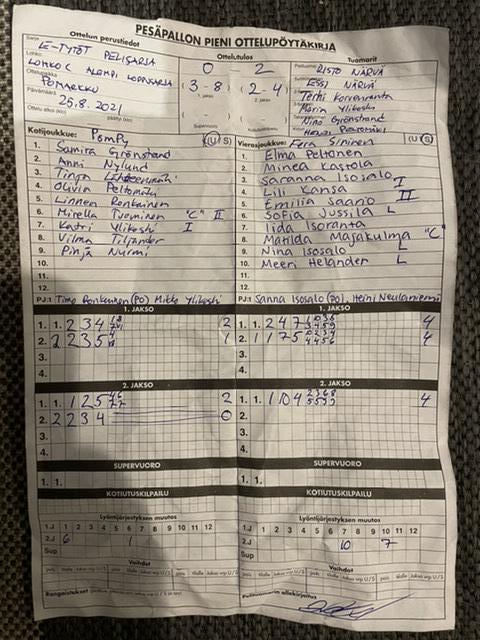 PESÄPALLON PIENI OTTELUPÖYTÄKIRJA
Ottelun perustiedot
Sarja E-TYTÖT PELISARJA
Lohko LOHKO C ALEMPI LOPPUSARJA
Ottelupaikka POMARKKU
Päivämäärä 25.8.2021
Ottelutulos
0 2
3-8 2-4
1. jakso 2. jakso
Supervuoro
Tuomarit
RISTO NÄRVÄ
ESSI NÄRVÄ
Terhi Korvenranta
Maria Ylikoski
Nina Grönstrand
Kotijoukkue: PomPy U S
1. Sumira Grönstrand
2. Anni Nylund
3. Tinja
4. Olivia Peltomäki
5. Linnea Ronkainen
6. Mirella Tuominen "C" II
7. Katri Ylikoski I
8. Vilma Tiljander
9. Pinja Nurmi
10.
11.
12.
PJ:1 Timo Ronkainen (PO) Mikko Ylikoski
Vierasjoukkue: Fera Sininen U S
1. Elma Peltonen
2. Minea Kastola
3. Saranna Isosalo I
4. Lili Kansa
5. Emilia Saario III
6. Sofia Jussila L
7. Iida Isoranta
8. Matilda Majakulma "C"
9. Nina Isosalo L
10. Meeri Helander L
11.
12.
PJ:1 Sanna Isosalo (PO), Heini Neulaniemi
1. JAKSO
1. 1. 2 3 4 2
2. 2 2 3 5 1
3.
4.
1. JAKSO
1. 1. 2 4 7 4
2. 1 1 7 5 4
3.
4.
2. JAKSO
1. 1. 1 2 5 2
2. 2 2 3 4 0
3.
4.
2. JAKSO
1. 1. 1 0 4 4
2.
3.
4.
SUPERVUORO
1. 1.
SUPERVUORO
1. 1.
KOTIUTUSKILPAILU
Lyöntijärjestyksen muutos
1.J 1 2 3 4 5 6 7 8 9 10 11 12
2.J 6 1
Sup
Vaihdot
KOTIUTUSKILPAILU
Lyöntijärjestyksen muutos
1.J 1 2 3 4 5 6 7 8 9 10 11 12
2.J 10 7
Sup
Vaihdot
Rangaistukset
Pelituomarin allekirjoitus